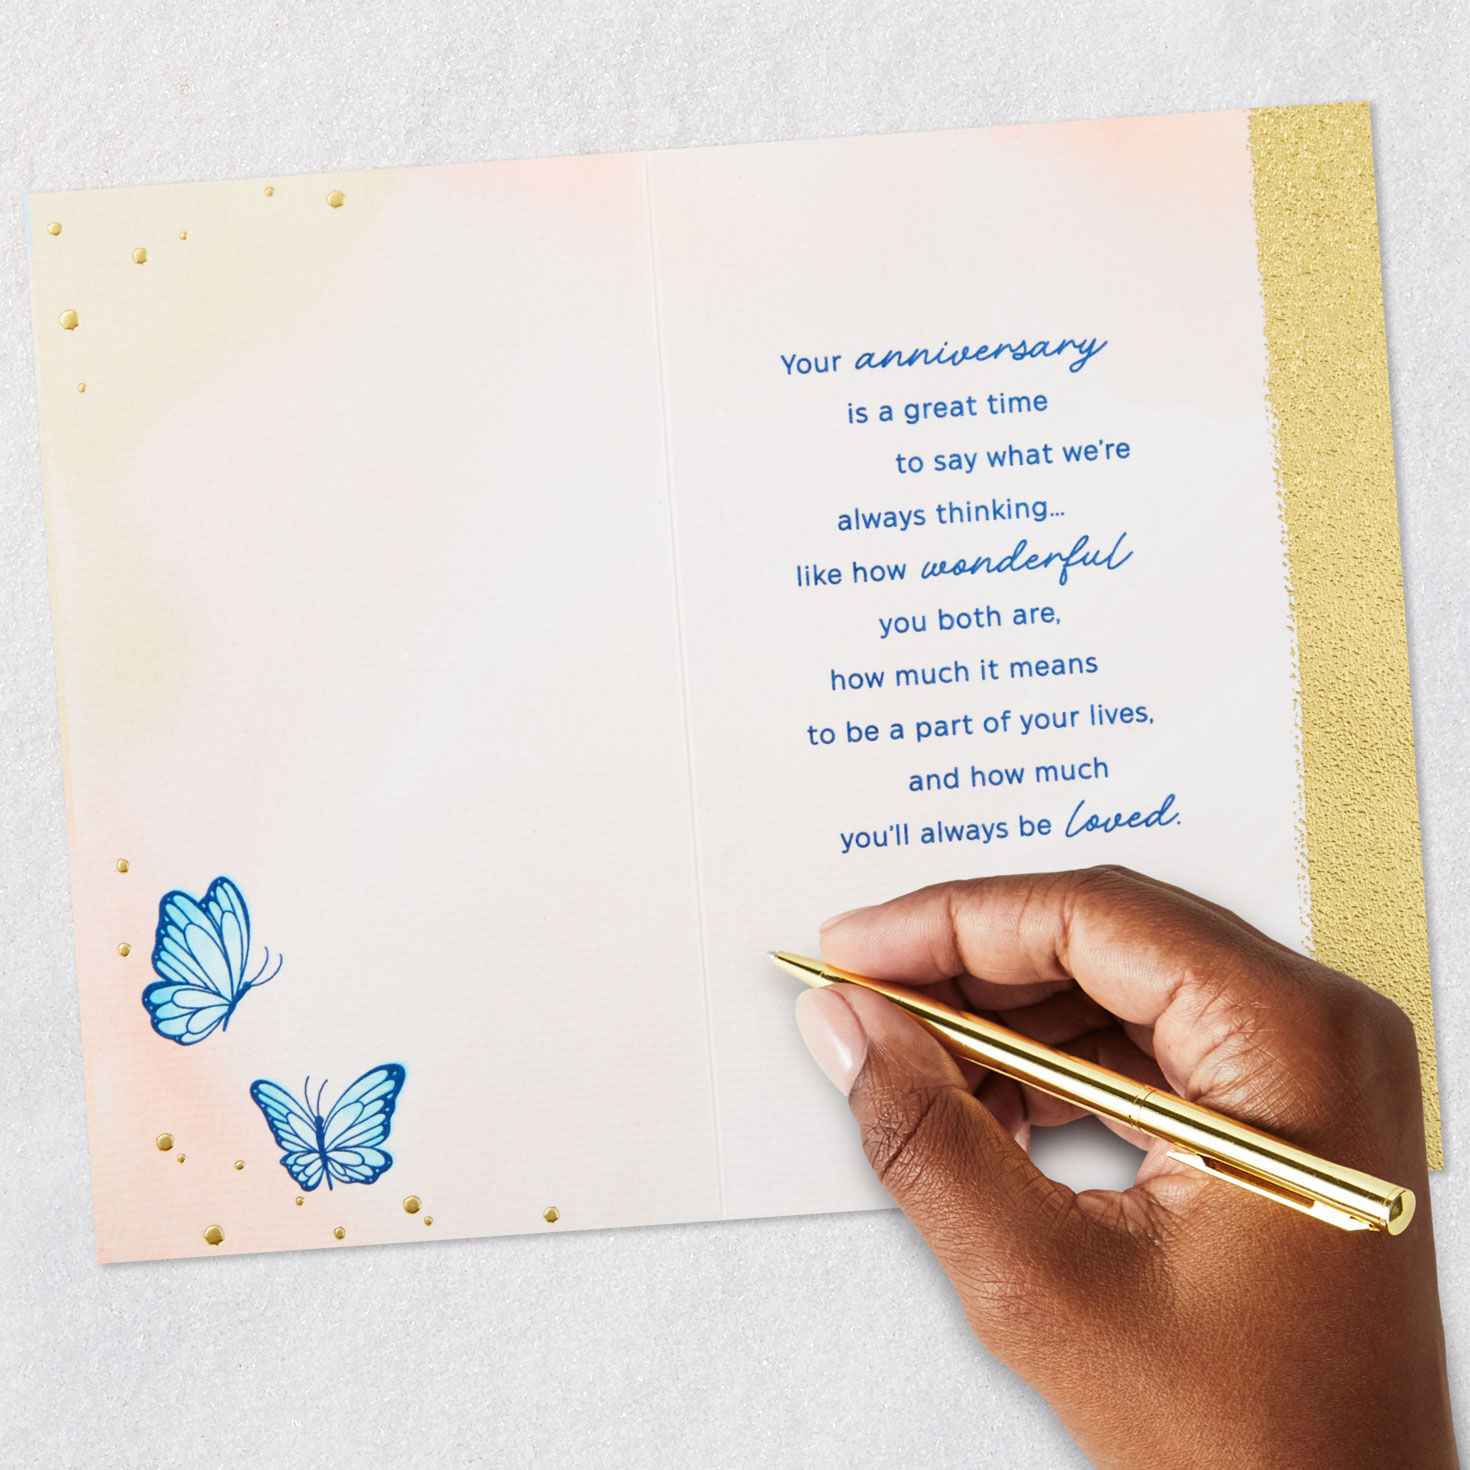 Your anniversary
is a great time
to say what we're
always thinking...
like how wonderful
you both are,
how much it means
to be a part of your lives,
and how much
you'll always be loved.